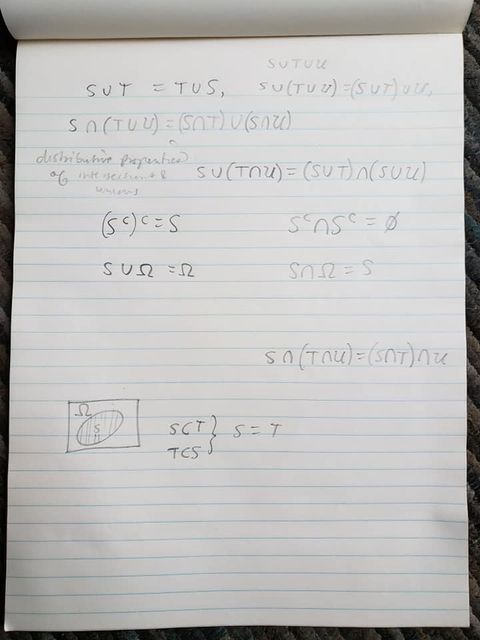 S∪T∪U
S∪T = T∪S, S∪(T∪U)=(S∪T)∪U,
S∩(T∪U)=(S∩T)∪(S∩U)
distributive properties
of intersection &
unions
S∪(T∩U)=(S∪T)∩(S∪U)
(Sᶜ)ᶜ=S Sᶜ∩Sᶜ=∅
S∪Ω=Ω S∩Ω=S
S∩(T∩U)=(S∩T)∩U
Ω
S
S⊂T
T⊂S } S=T